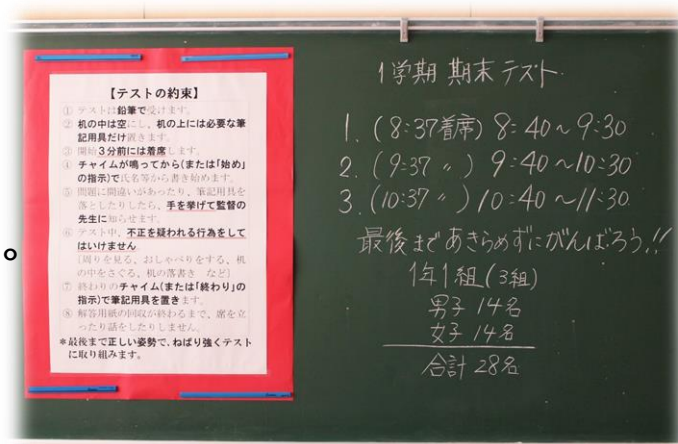 【テストの約束】
① テストは鉛筆で受けます。
② 机の中は空にし、机の上には必要な筆
記用具だけ置きます。
③ 開始3分前には着席します。
④ チャイムが鳴ってから(または「始め」
の指示)で氏名等から書き始めます。
⑤ 問題に間違いがあったり、筆記用具を
落としたりしたら、手を挙げて監督の
先生に知らせます。
⑥ テスト中、不正を疑われる行為をして
はいけません
(周りを見る、おしゃべりをする、机
の中をさぐる、机の落書き など)
⑦ 終わりのチャイム(または「終わり」の
指示)で筆記用具を置きます。
⑧ 解答用紙の回収が終わるまで、席を立
ったり話をしたりしません。
*最後まで正しい姿勢で、ねばり強くテスト
に取り組みます。
1学期 期末テスト
1. (8:37着席) 8:40~9:30
2. (9:37 〃 ) 9:40~10:30
3. (10:37 〃 ) 10:40~11:30
最後まであきらめずにがんばろう!!
1年1組(3組)
男子 14名
女子 14名
合計 28名